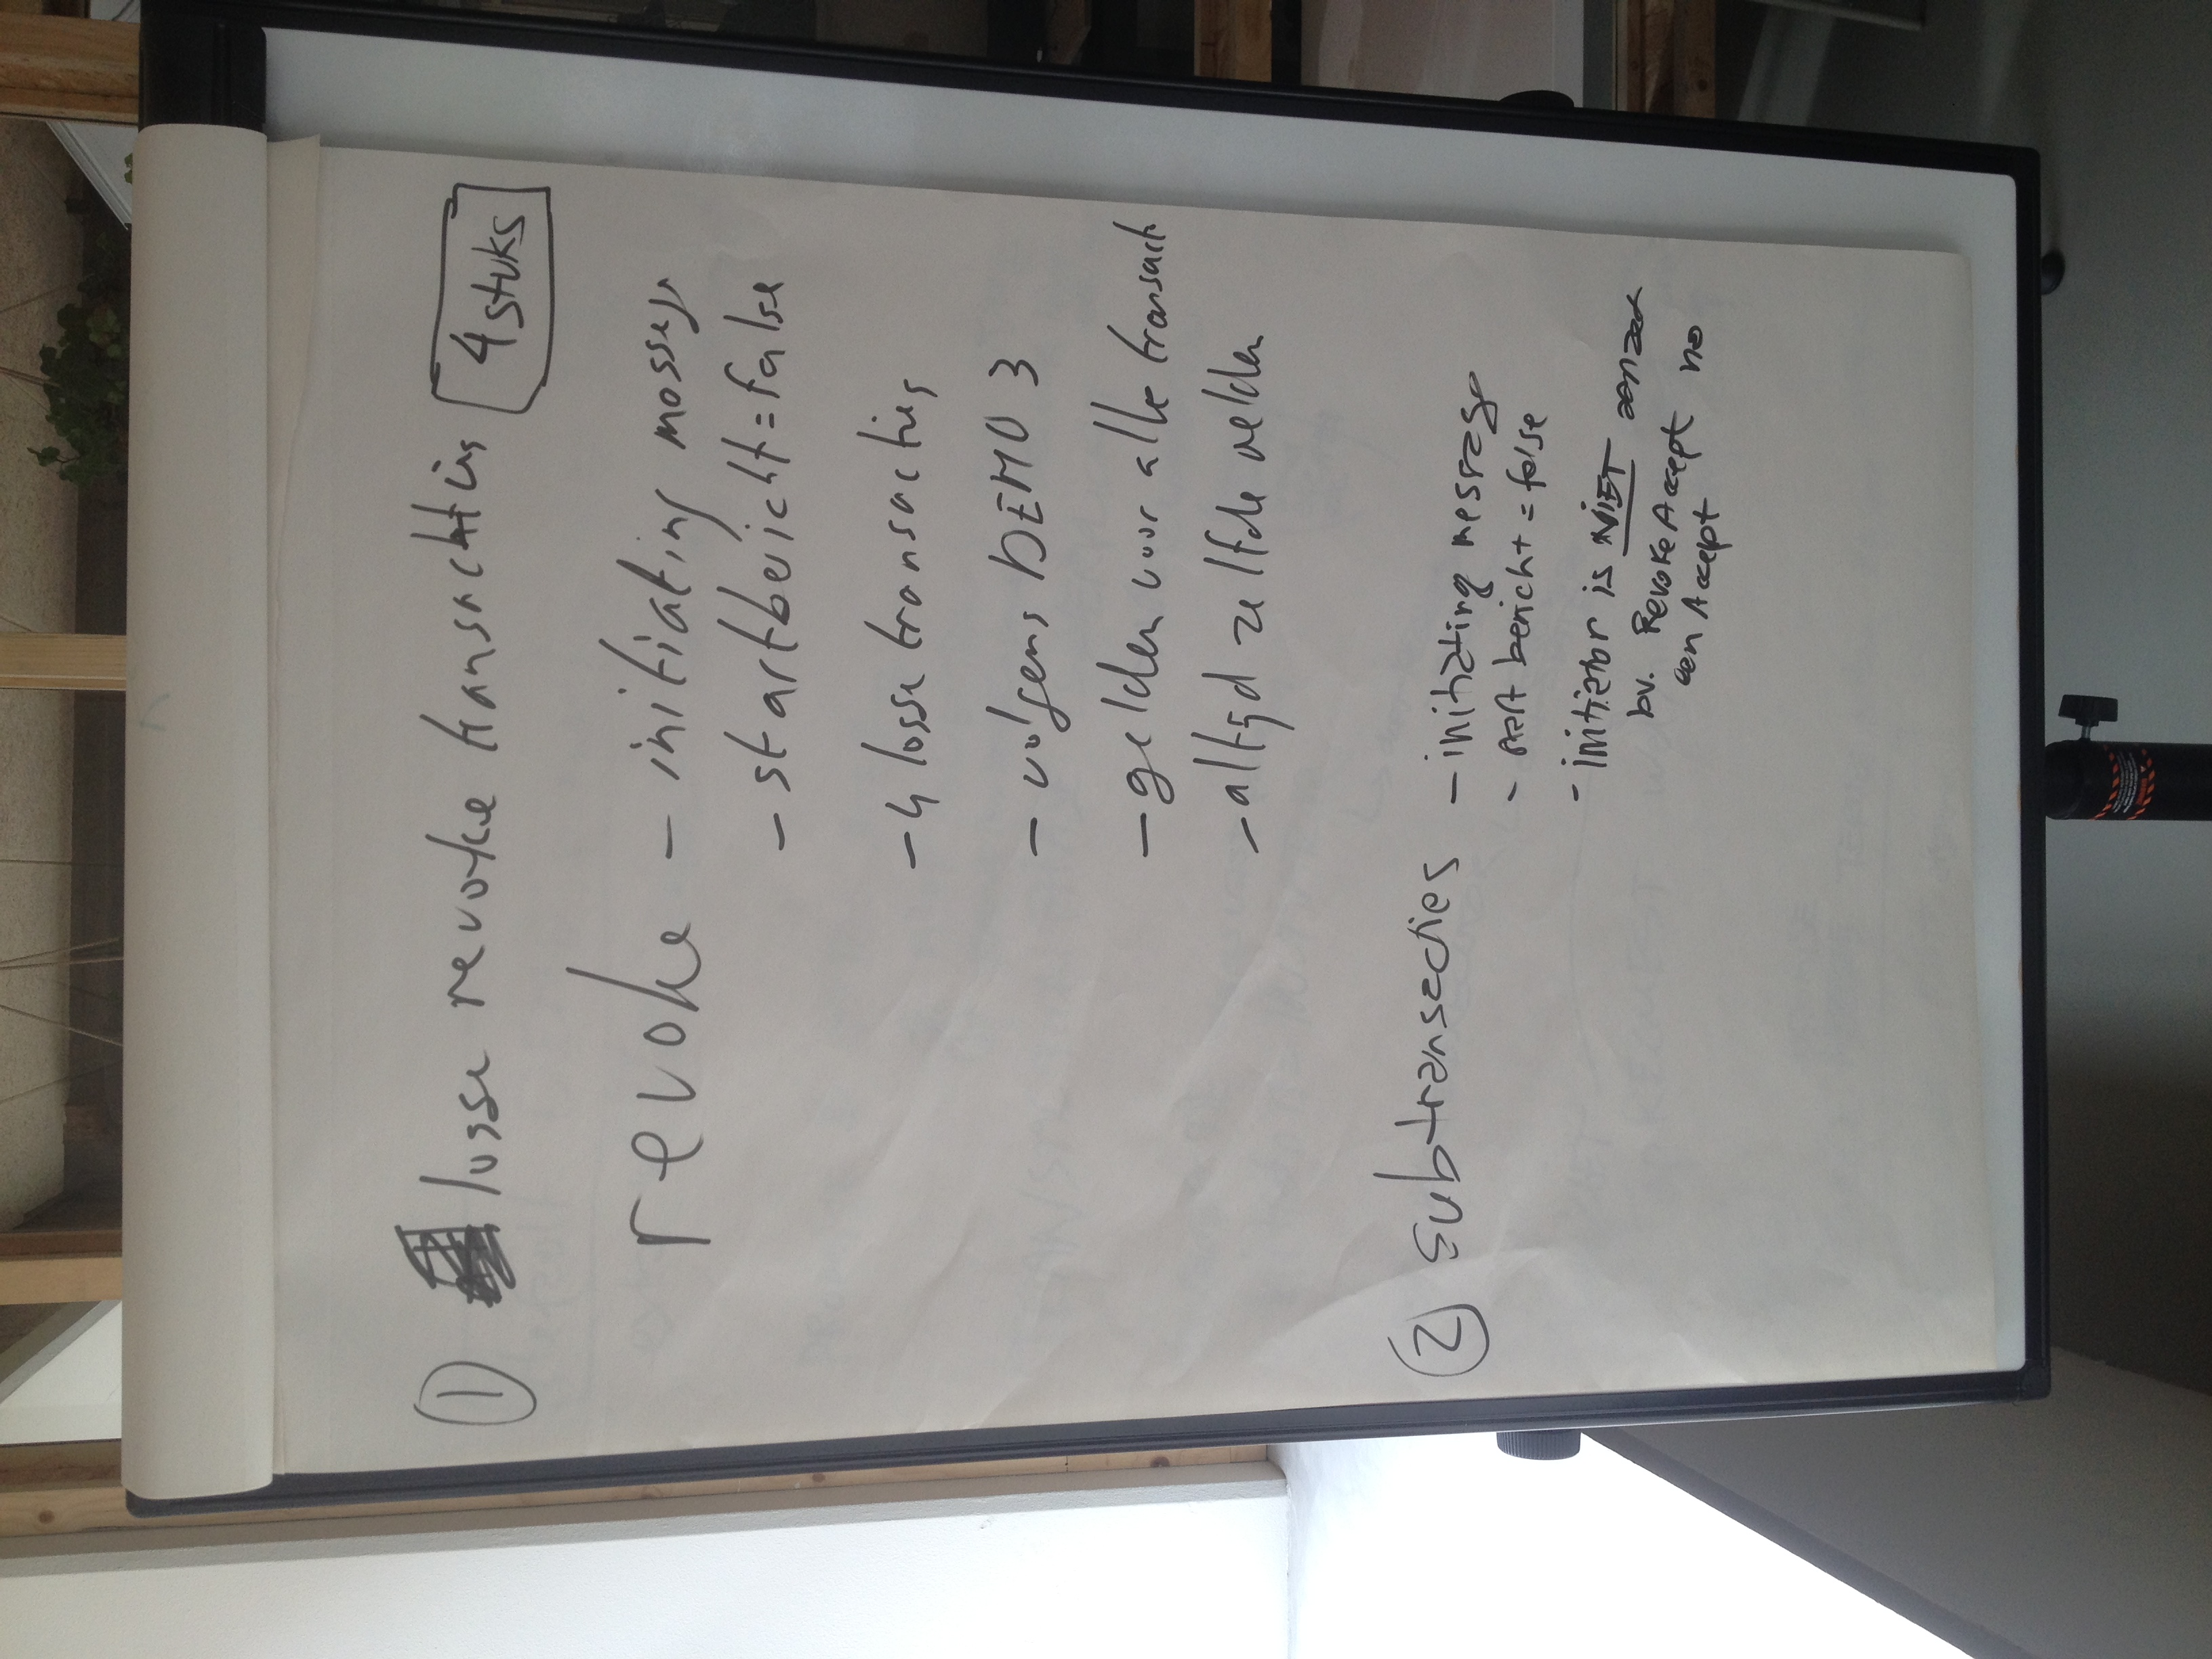 ① losse revoke transachties 4 stuks
revoke - initiating message
- startbericht = false
- 4 losse transacties
- volgens DEMO 3
- gelden voor alle transact
- altijd zelfde velden
② subtransacties - initiating message
- start bericht = false
- initiator is NIET aan zet
bv. Revoke Accept na
een Accept